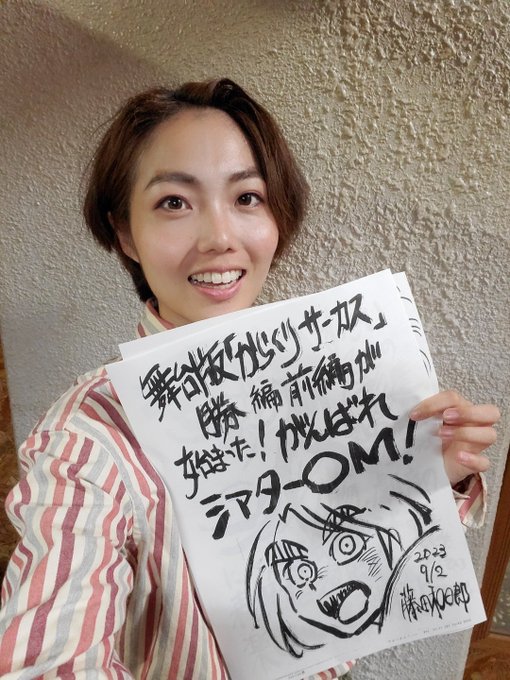 舞台版「からくりサーカス」
勝 編 前編が
始まった！がんばれ
シアターOM！
2023
9/2
藤田和日郎